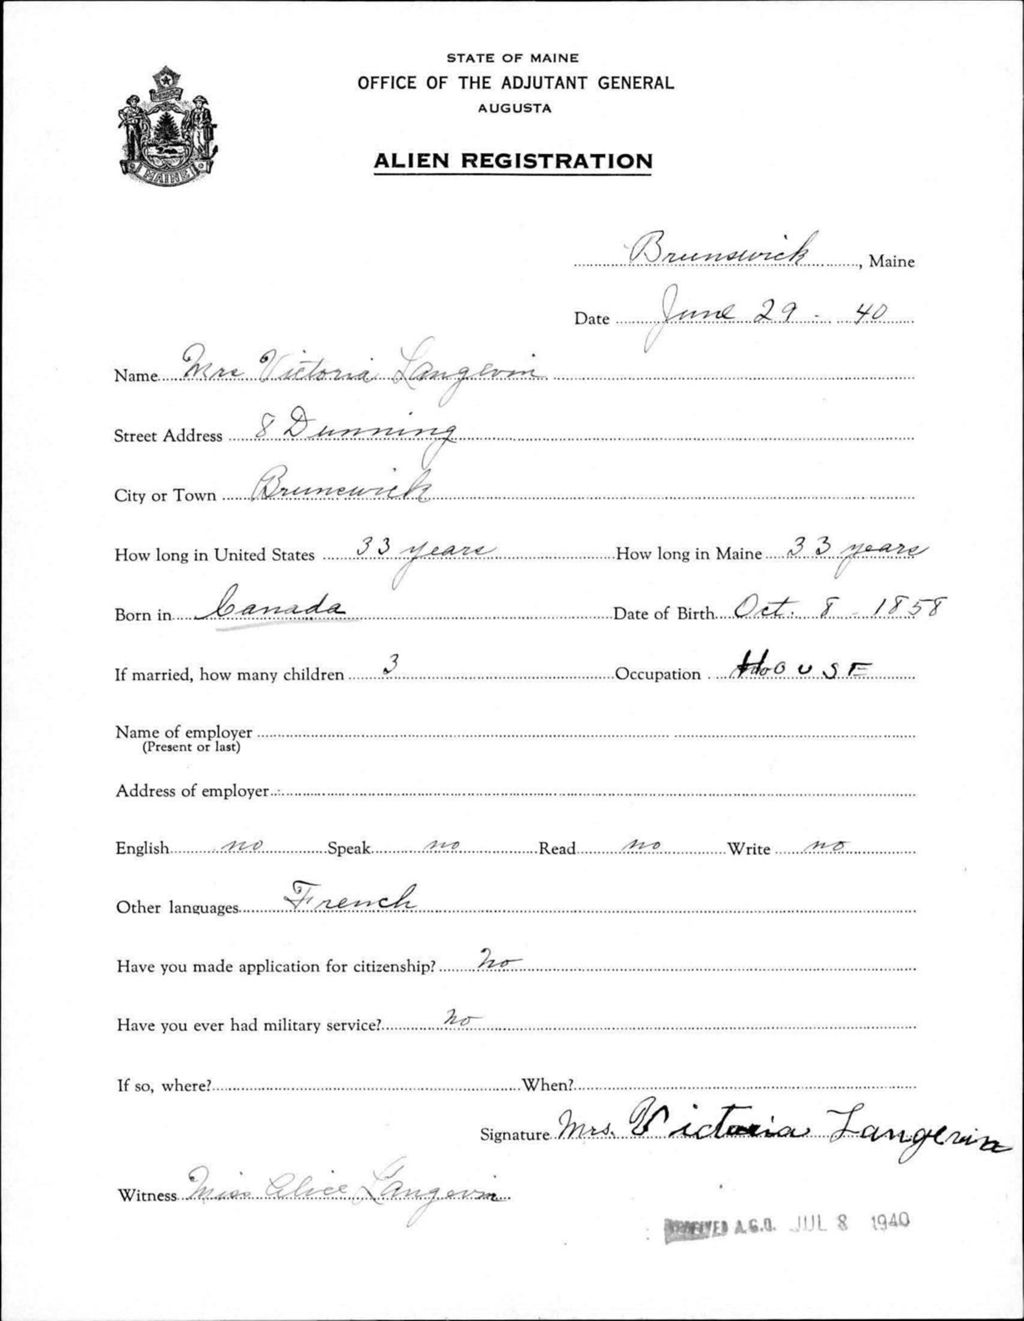 STATE OF MAINE
OFFICE OF THE ADJUTANT GENERAL
AUGUSTA
ALIEN REGISTRATION
MAINE
Brunswick, Maine
Date June 29 - 40
Name Mrs Victoria Langevin
Street Address 8 Dunning
City or Town Brunswick
How long in United States 33 years How long in Maine 33 years
Born in Canada Date of Birth Oct. 8 - 1858
If married, how many children 3 Occupation HOUSE
Name of employer
(Present or last)
Address of employer
English no Speak no Read no Write no
Other languages French
Have you made application for citizenship? No
Have you ever had military service? No
If so, where? When?
Signature Mrs. Victoria Langevin
Witness Miss Alice Langevin
RECEIVED A.G.O. JUL 8 1940